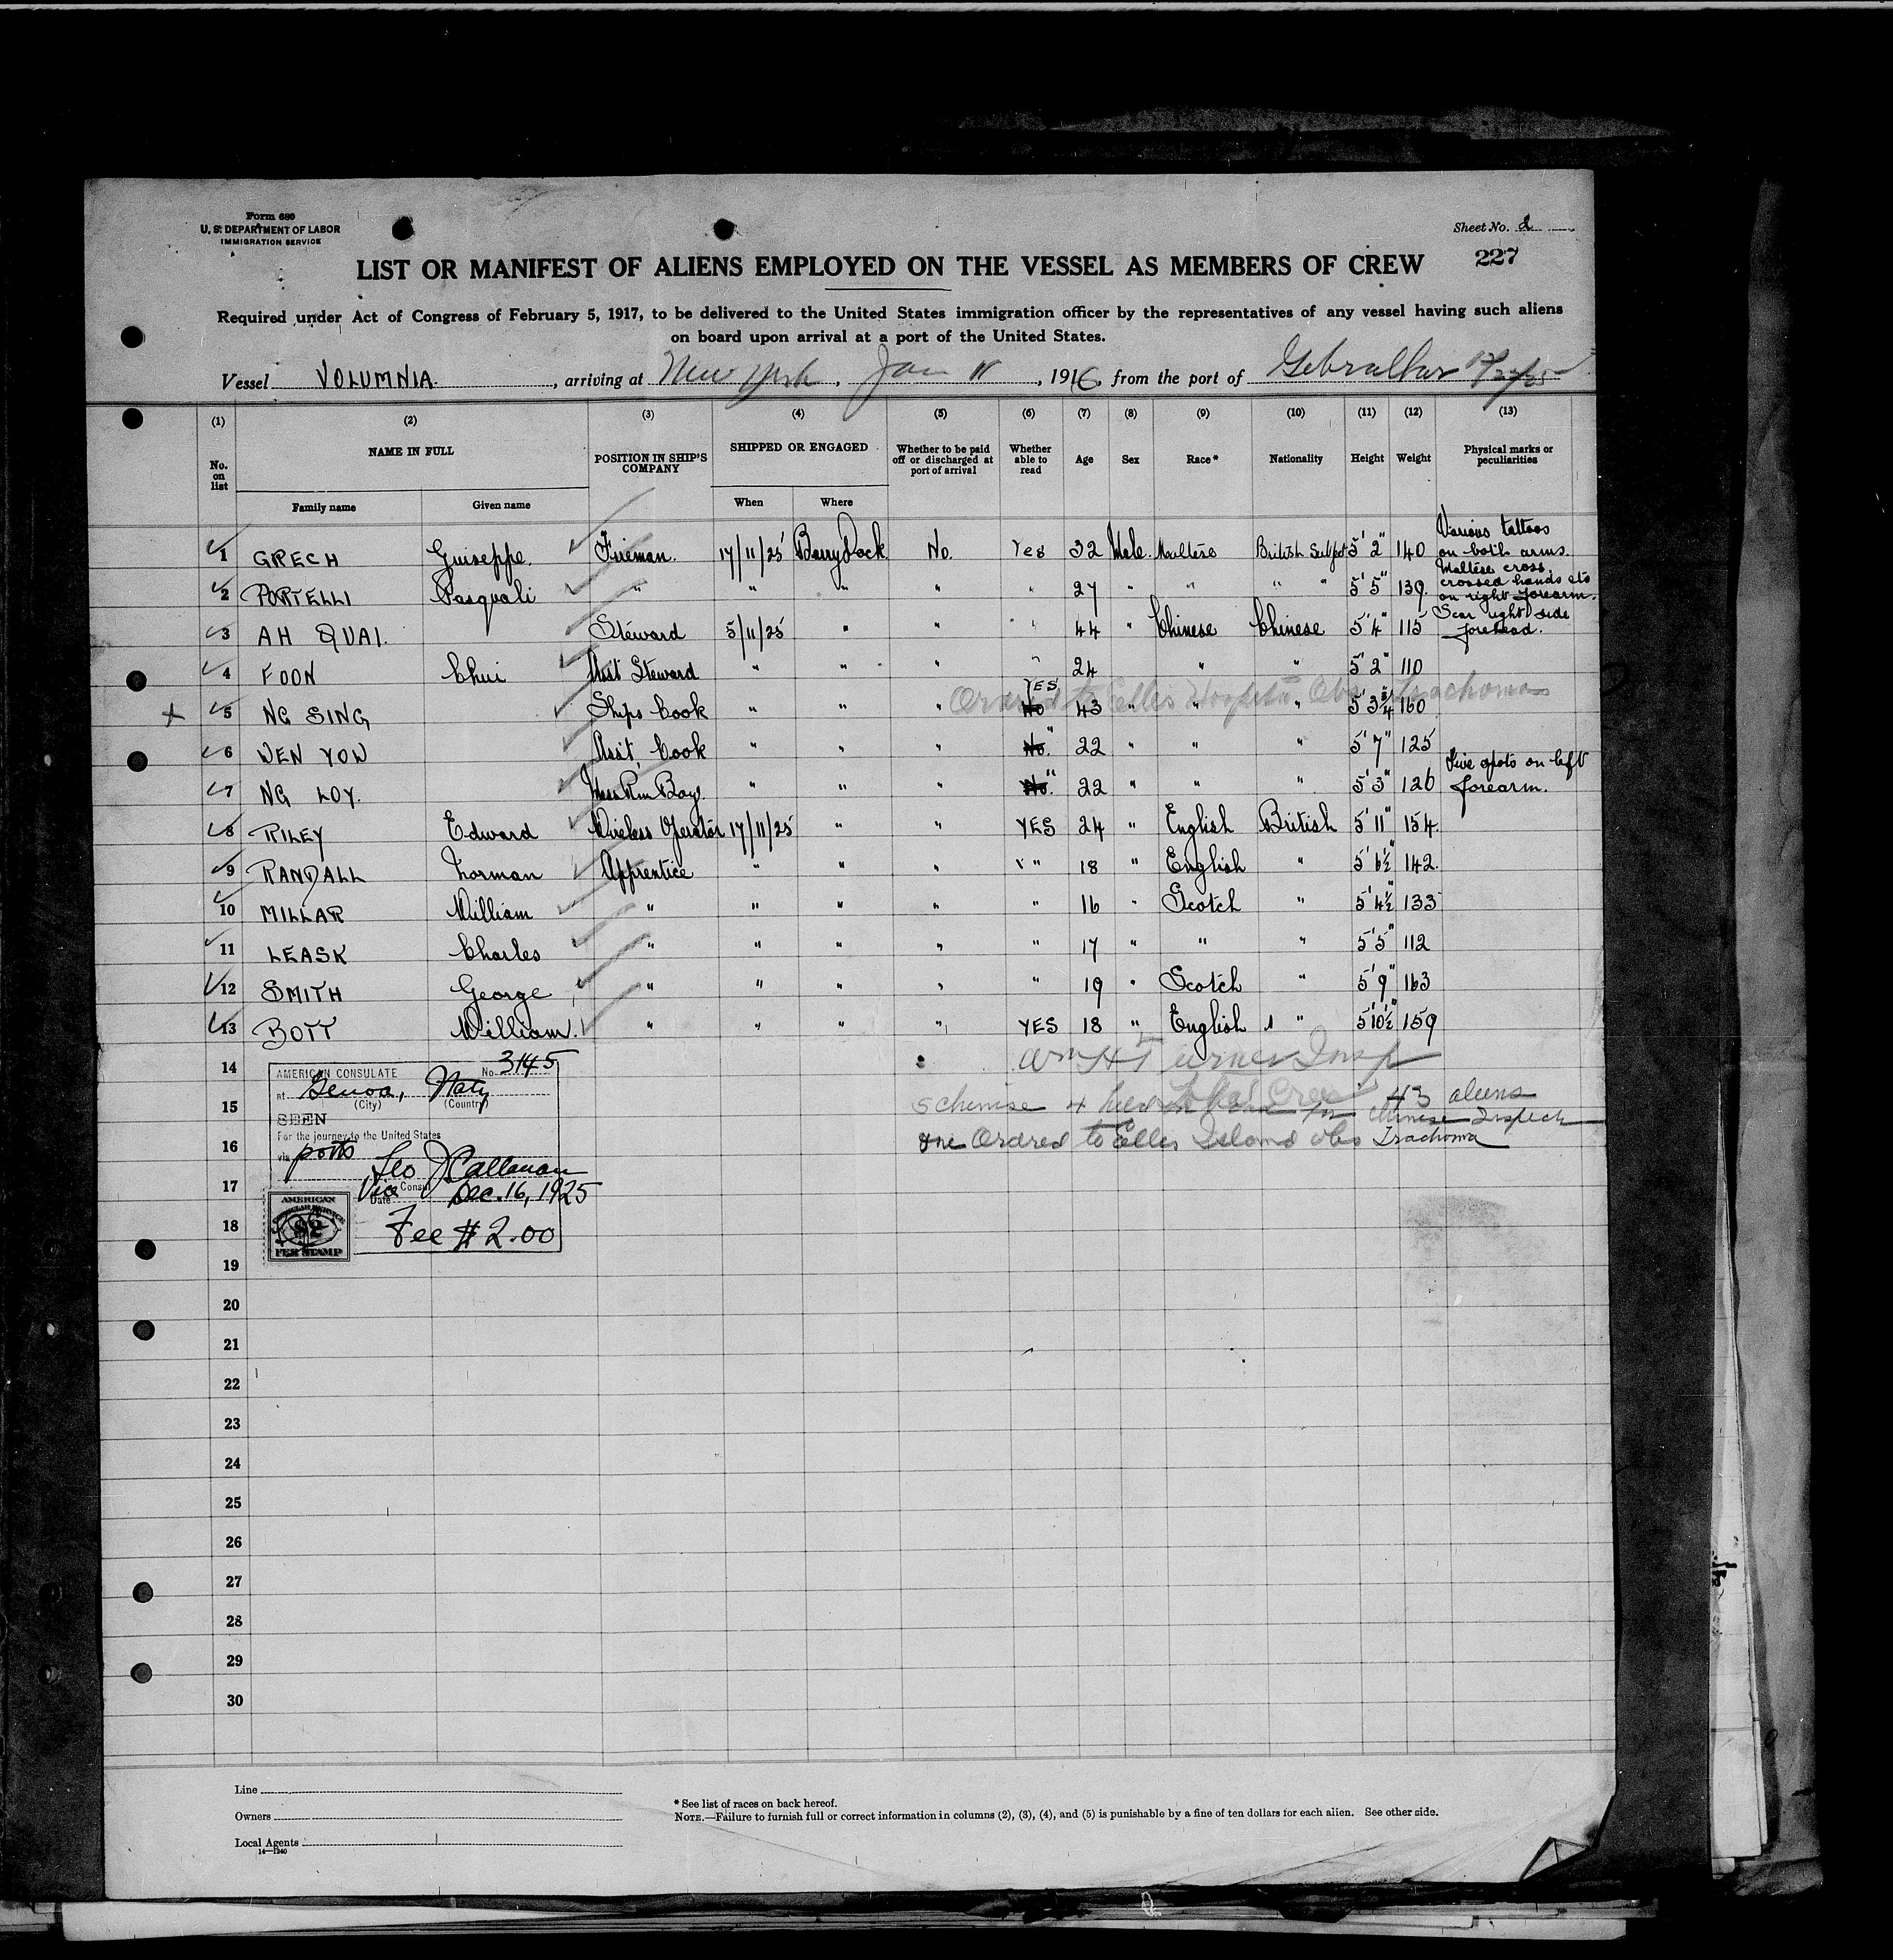 Form 680
U. S. DEPARTMENT OF LABOR
IMMIGRATION SERVICE
Sheet No. 2
227
LIST OR MANIFEST OF ALIENS EMPLOYED ON THE VESSEL AS MEMBERS OF CREW
Required under Act of Congress of February 5, 1917, to be delivered to the United States immigration officer by the representatives of any vessel having such aliens
on board upon arrival at a port of the United States.
Vessel VOLUMNIA. , arriving at New York , Jan 11 , 1916 from the port of Gibraltar
(1) (2) (3) (4) (5) (6) (7) (8) (9) (10) (11) (12) (13)
No. on list NAME IN FULL POSITION IN SHIP'S COMPANY SHIPPED OR ENGAGED Whether to be paid off or discharged at port of arrival Whether able to read Age Sex Race* Nationality Height Weight Physical marks or peculiarities
Family name Given name When Where
1 GRECH Guiseppe. Fireman. 17/11/25 Barry Dock No. Yes 32 Male. Maltese British Subject 5' 2" 140 Various tattoos on both arms.
2 PORTELLI Pasquali " " " " " 27 " " " " 5' 5" 139. Maltese cross, crossed hands etc on right forearm.
3 AH QUAI. Steward 5/11/25 " " " 44 " Chinese Chinese 5' 4" 115 Scar right side forehead.
4 FOON Chui Asst Steward " " " " 24 " " 5' 2" 110
Ordered to Ellis Hospital Obs Trachoma
5 NG SING Ships Cook " " " No YES 43 " " " 5' 3¾" 160
6 WEN YOW Asst. Cook " " " No. " 22 " " " 5' 7" 125
7 NG LOY. Mess Rm Boy. " " " No. " 22 " " " 5' 3" 126 Five spots on left forearm.
8 RILEY Edward Wireless Operator 17/11/25 " " YES 24 " English British 5' 11" 154.
9 RANDALL Norman Apprentice " " " " 18 " English " 5' 6½" 142.
10 MILLAR William " " " " " 16 " Scotch " 5' 4½" 133
11 LEASK Charles " " " " " 17 " " " 5' 5" 112
12 SMITH George " " " " " 19 " Scotch " 5' 9" 163
13 BOTT William. " " " " YES 18 " English " 5' 10½" 159
14
Wm H Turner Insp
AMERICAN CONSULATE No. 3145
at Genoa, Italy
(City) (Country)
15
43 aliens
5 Chinese 4 held Chinese Inspect
SEEN
For the journey to the United States
16
one Ordred to Ellis Island obs Trachoma
via ports
Leo J Callanan
17
Vice Consul
Date Dec. 16, 1925
AMERICAN CONSULAR SERVICE
$2
PER STAMP
18
Fee $2.00
19
20
21
22
23
24
25
26
27
28
29
30
Line
Owners
Local Agents
14—1240
* See list of races on back hereof.
NOTE.—Failure to furnish full or correct information in columns (2), (3), (4), and (5) is punishable by a fine of ten dollars for each alien. See other side.